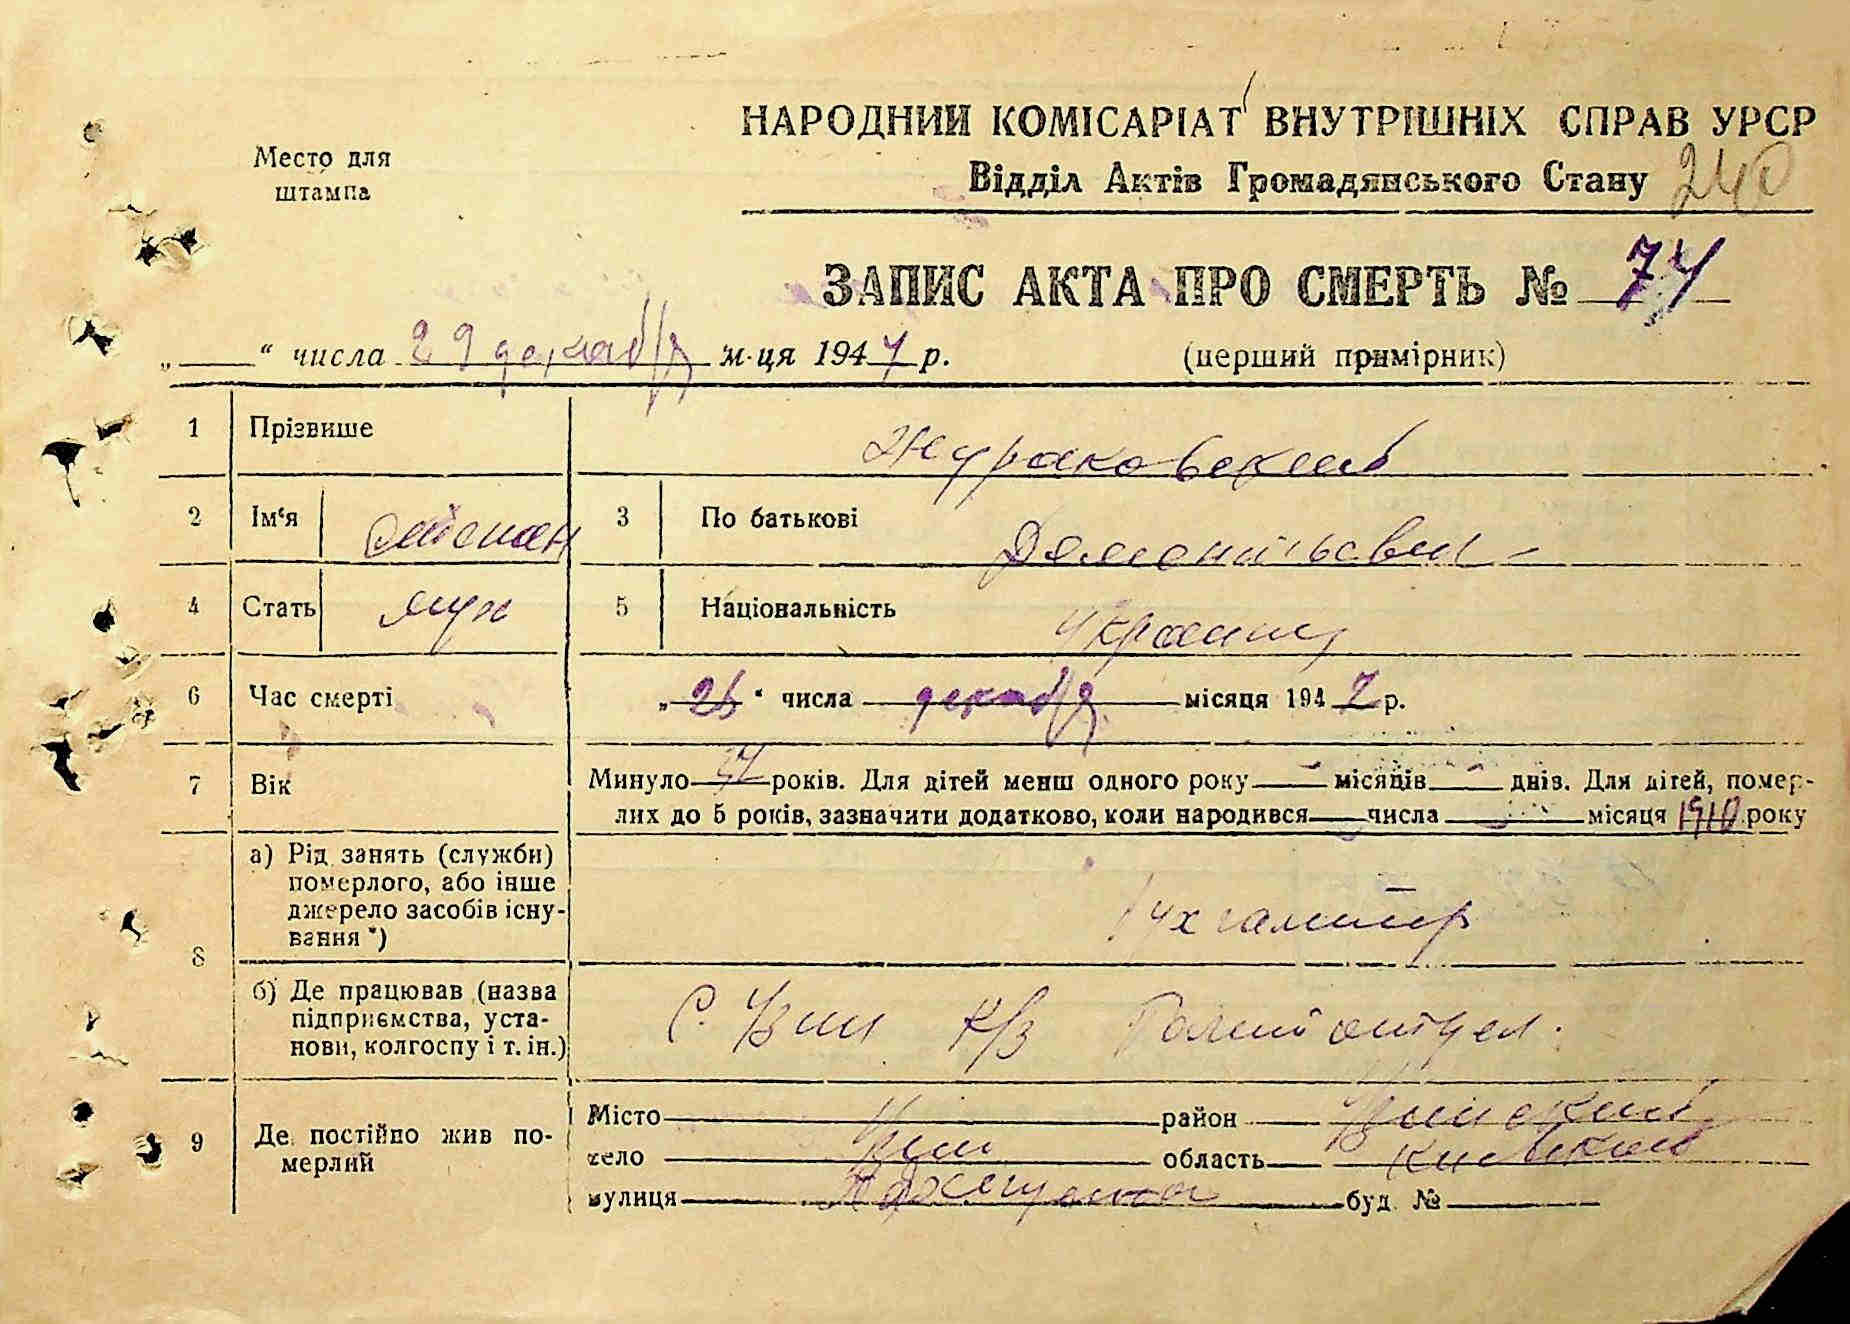 НАРОДНИЙ КОМІСАРІАТ ВНУТРІШНІХ СПРАВ УРСР
Место для штампа
Відділ Актів Громадянського Стану 240
ЗАПИС АКТА ПРО СМЕРТЬ № 74
„ “ числа 29 декабря м-ця 1947 р. (перший примірник)
1 Прізвише Жураковский
2 Ім'я Степан 3 По батькові
4 Стать муж 5 Національність украинец
6 Час смерті „26“ числа декабря місяця 1947 р.
7 Вік Минуло 37 років. Для дітей менш одного року місяців днів. Для дітей, помер-
лих до 5 років, зазначити додатково, коли народився числа місяця 1910 року
8 а) Рід занять (служби)
померлого, або інше
джерело засобів існу-
вання *)
бухгалтер
б) Де працював (назва
підприємства, уста-
нови, колгоспу і т. ін.)
С. Узин с/з Политотдел.
9 Де постійно жив по-
мерлий
Місто район Узинский
село Узин область Киевская
вулиця буд. №